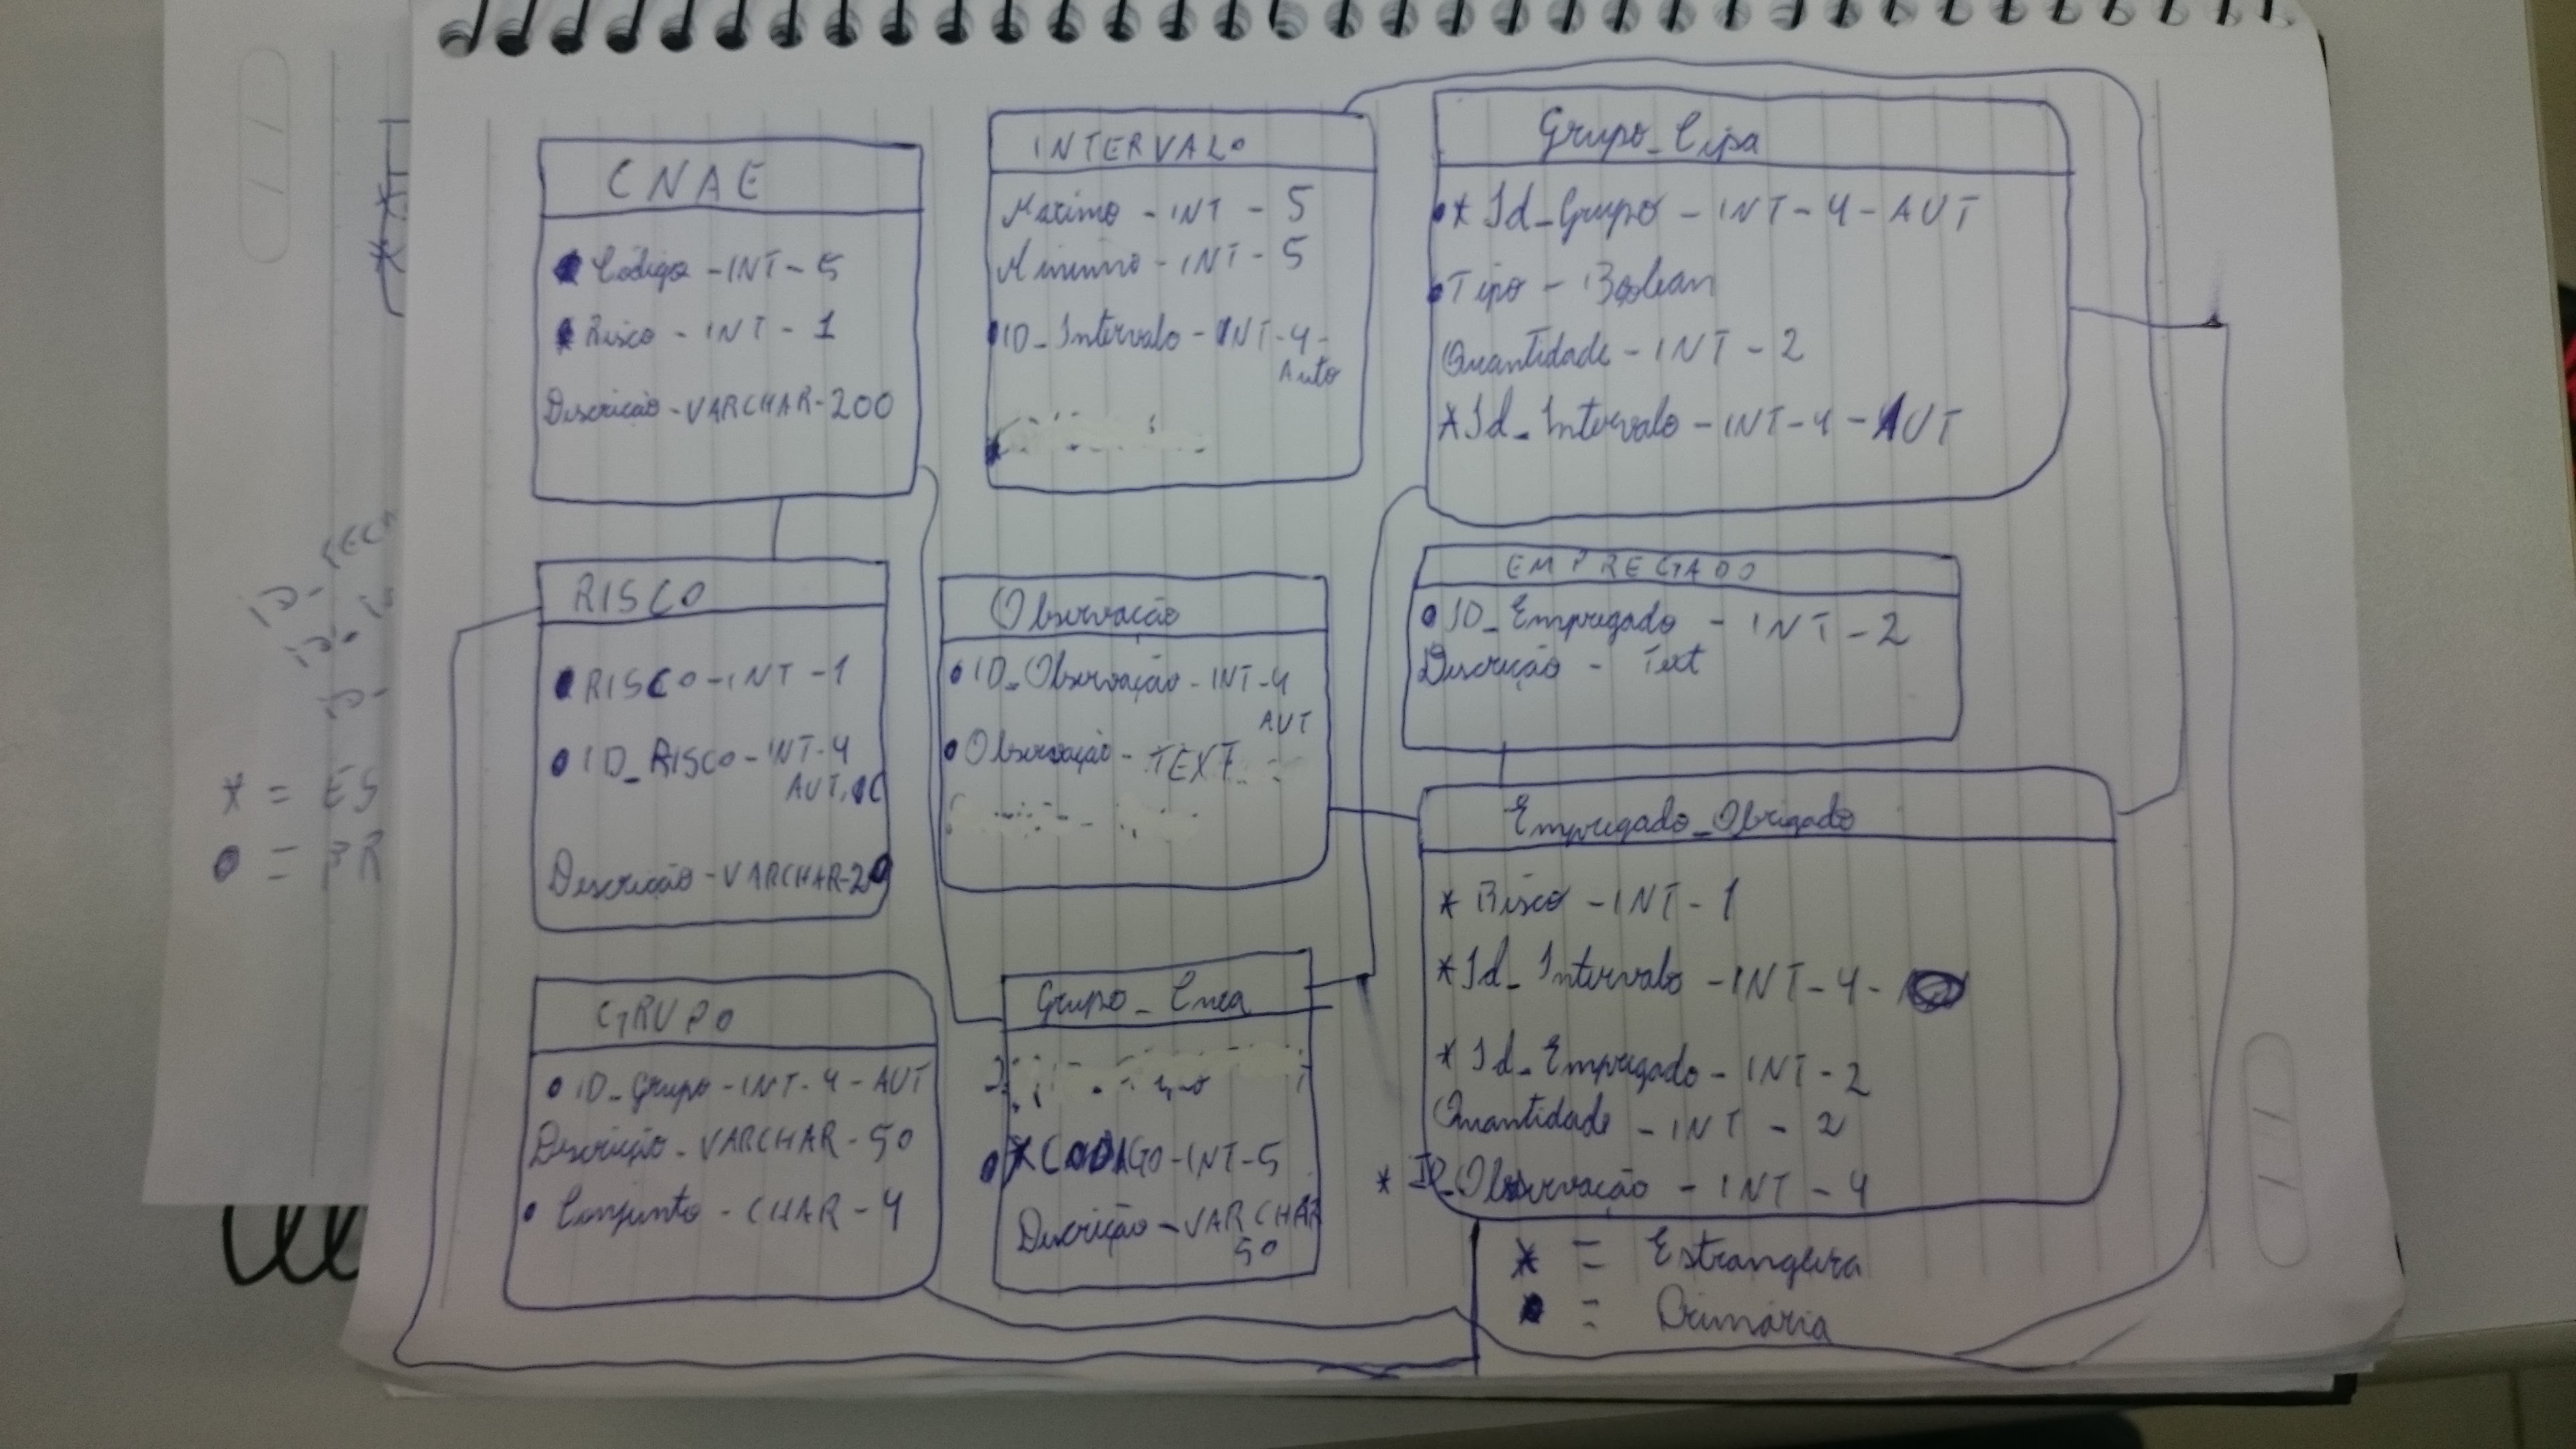 CNAE
• Código - INT - 5
* Risco - INT - 1
Discrição - VARCHAR - 200
INTERVALO
Maximo - INT - 5
Minimo - INT - 5
• ID_Intervalo - INT - 4 -
Auto
Grupo_Cipa
•* Id_Grupo - INT - 4 - AUT
• Tipo - Boolean
Quantidade - INT - 2
* Id_Intervalo - INT - 4 - AUT
RISCO
• RISCO - INT - 1
• ID_RISCO - INT - 4
Descrição - VARCHAR - 20
Observação
• ID_Observação - INT - 4
AUT
• Observação - TEXT
EMPREGADO
• ID_Empregado - INT - 2
Descrição - Text
Empregado_Obrigado
* Risco - INT - 1
* Id_Intervalo - INT - 4 -
* Id_Empregado - INT - 2
Quantidade - INT - 2
* ID_Observação - INT - 4
GRUPO
• ID_Grupo - INT - 4 - AUT
Descrição - VARCHAR - 50
• Conjunto - CHAR - 4
Grupo_Cnea
•* CODIGO - INT - 5
Discrição - VARCHAR
50
* = Estrangeira
• = Primária
* = ES
• = PR